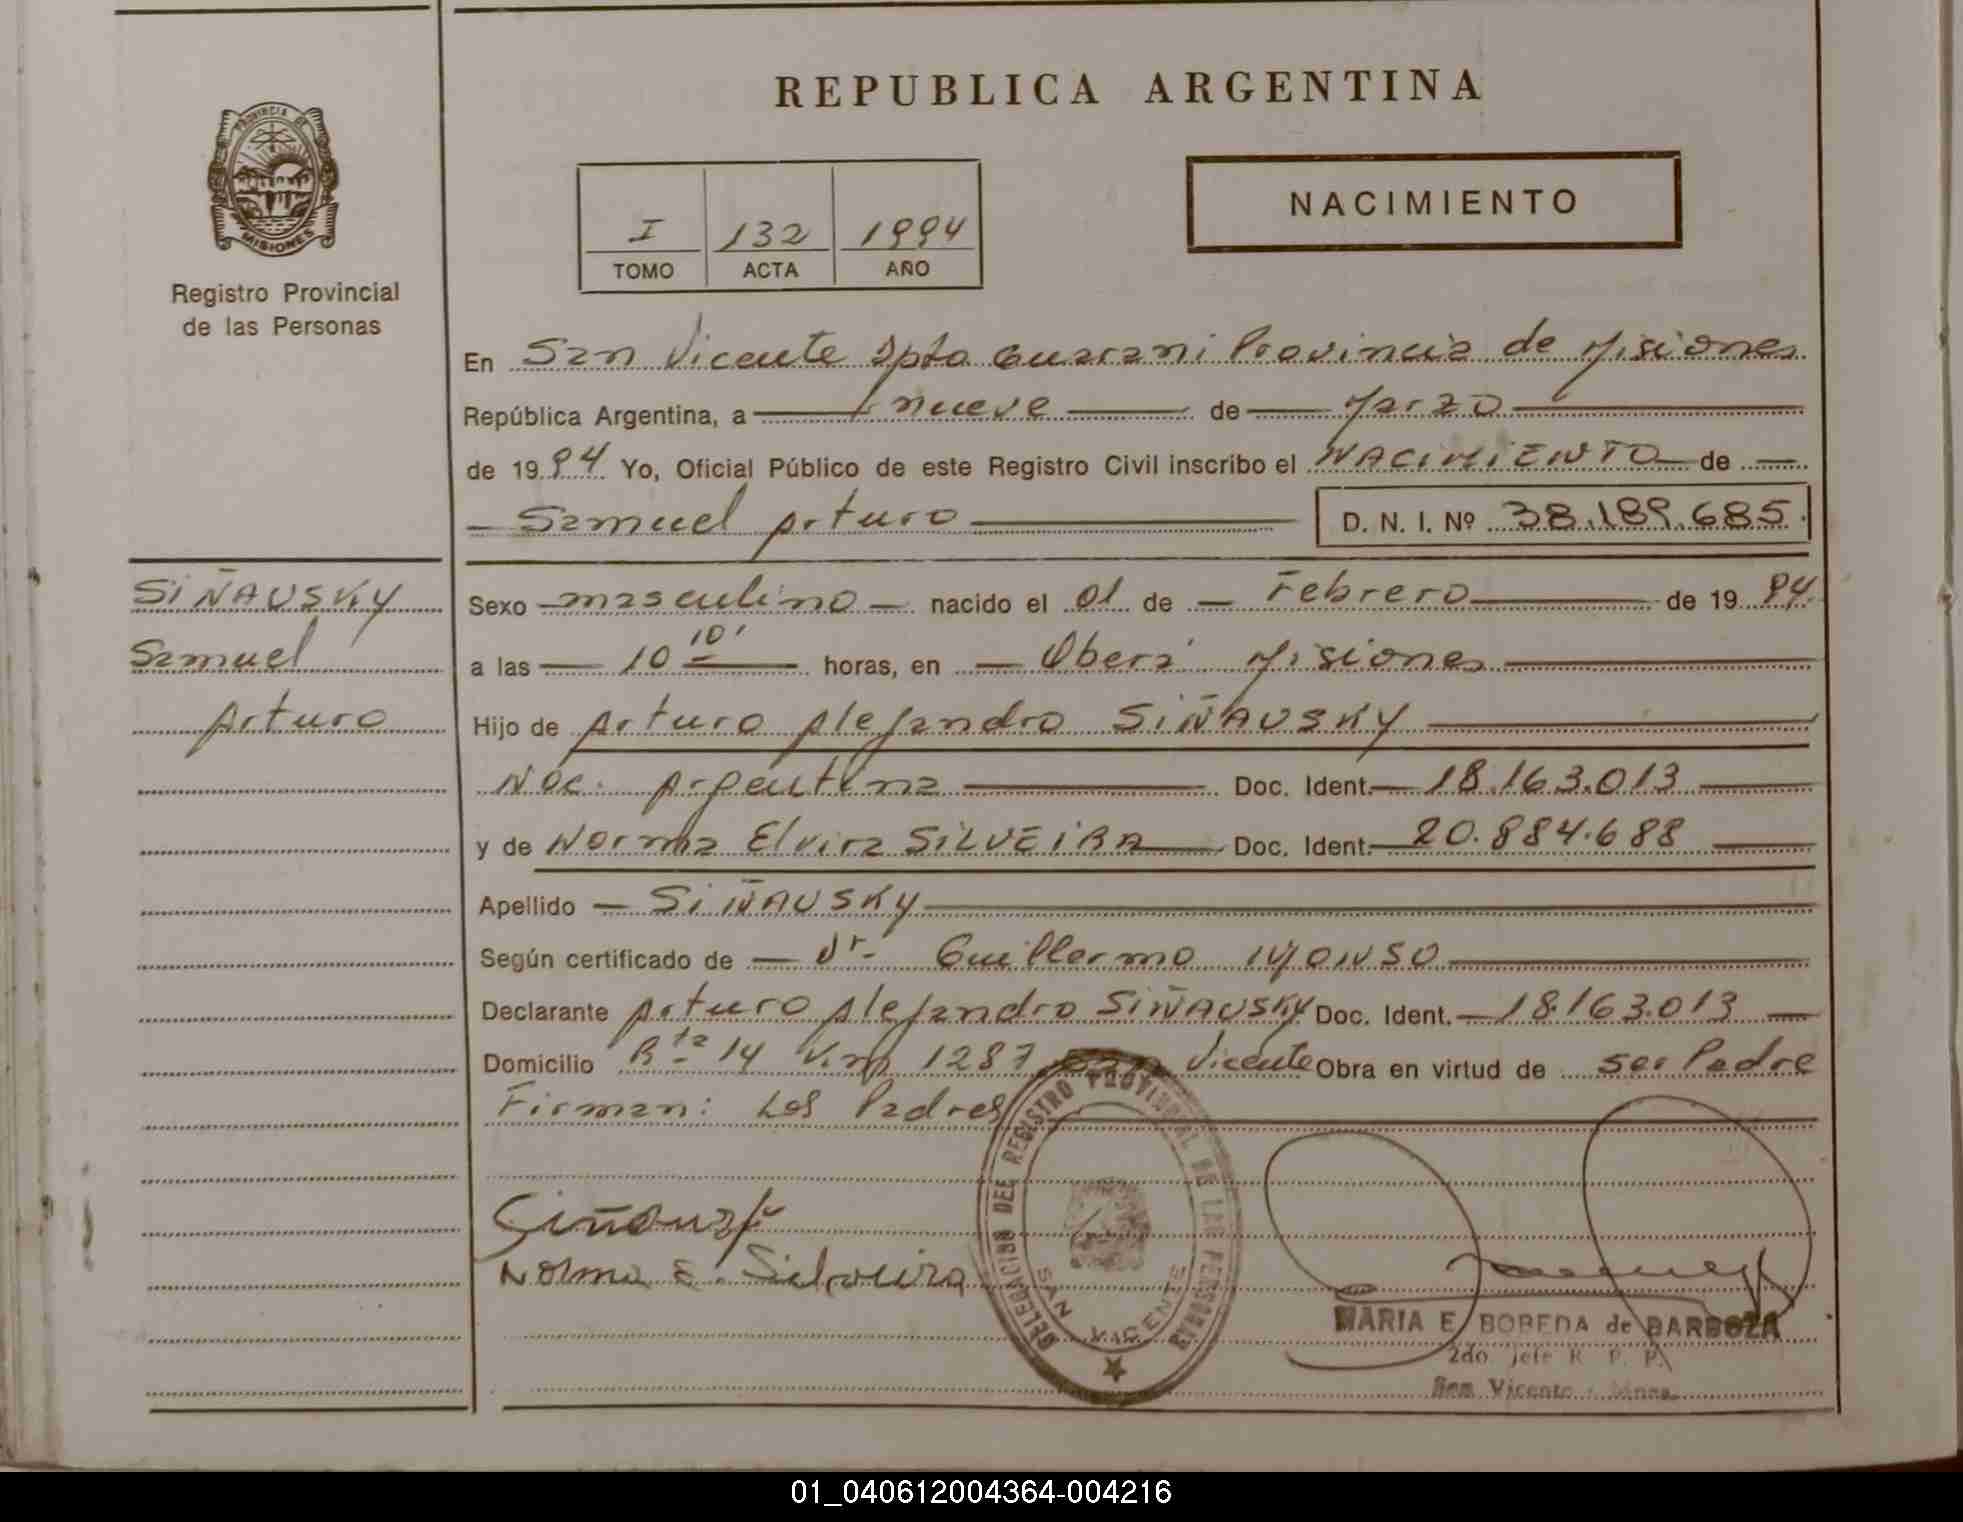 REPUBLICA ARGENTINA
PROVINCIA DE
MISIONES
Registro Provincial
de las Personas
I 132 1994
TOMO ACTA AÑO
NACIMIENTO
En San Vicente Dpto Guarani Provincia de Misiones
República Argentina, a nueve de Marzo
de 1994 Yo, Oficial Público de este Registro Civil inscribo el NACIMIENTO de
Samuel Arturo D. N. I. Nº 38.189.685
SIÑAUSKY
Samuel
Arturo
Sexo masculino nacido el 01 de Febrero de 1994
a las 10 10' horas, en Oberá Misiones
Hijo de Arturo Alejandro SIÑAUSKY
Nac. Argentina Doc. Ident. 18.163.013
y de Norma Elvira SILVEIRA Doc. Ident. 20.884.688
Apellido SIÑAUSKY
Según certificado de Dr. Guillermo
Declarante Arturo Alejandro SIÑAUSKY Doc. Ident. 18.163.013
Domicilio Rta 14 Km 1287 San Vicente Obra en virtud de ser Padre
Firman: Los Padres
Norma E. Silveira
DELEGACION DEL REGISTRO PROVINCIAL DE LAS PERSONAS
SAN VICENTE
MARIA E BOBEDA de BARBOZA
2do Jefe R. P. P.
San Vicente - Mnes.
01_040612004364-004216